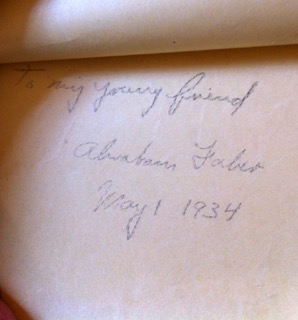 To my young friend
Abraham Faber
May 1 1934